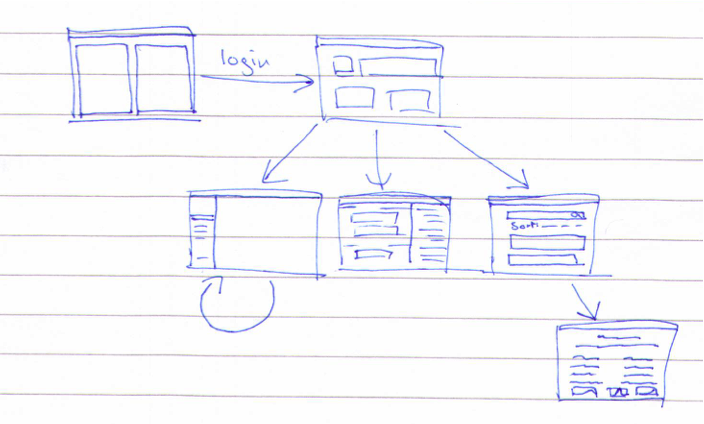 login
Sort: